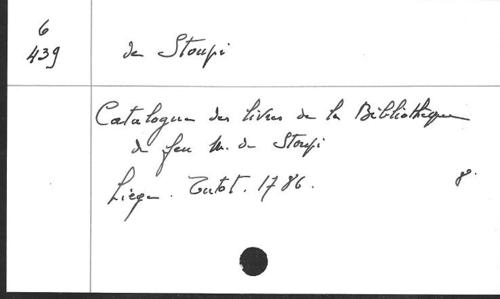 6
439
de Stoupi
Catalogue des livres de la Bibliothèque
de feu M. de Stoupi
Liège. Tutot. 1786.
8.